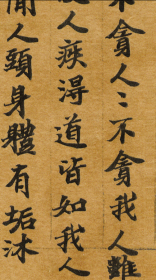 不貪人〻不貪我人難
人疾淂道皆如我人
人頭身體有垢沐